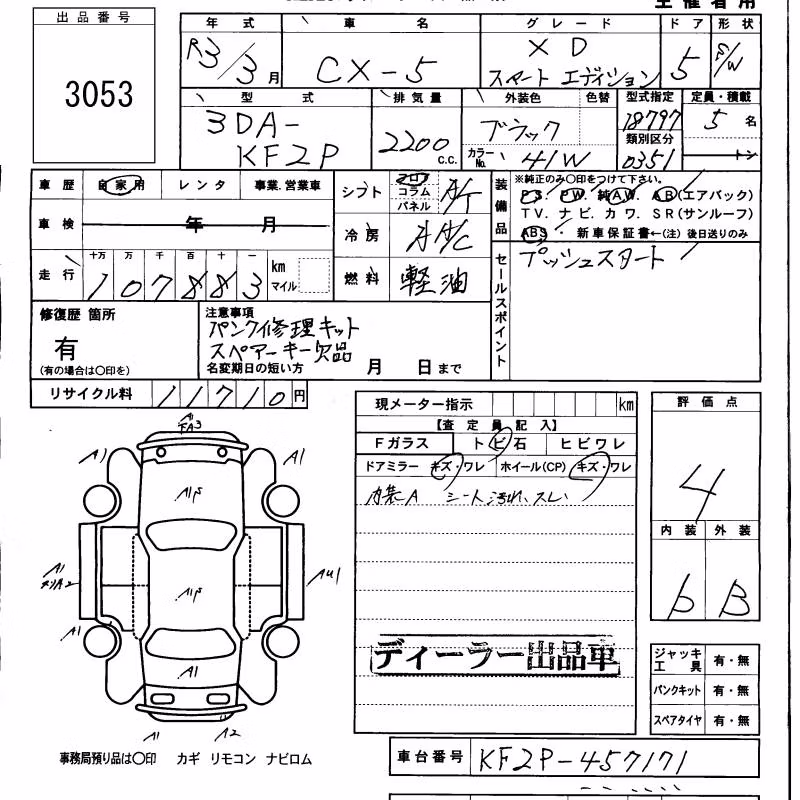 出品番号
3053
年式 車名 グレード ドア 形状
R3/3月 CX-5 XD
スマート エディション 5 S/W
型式 排気量 外装色 色替 型式指定 定員・積載
3DA-
KF2P 2200 c.c. ブラック 18797 5名
カラーNo. 41W 類別区分 0351 トン
車歴 自家用 レンタ 事業.営業車
シフト フロア コラム パネル A/T
装備品 ※純正のみ〇印をつけて下さい。
P.S. P.W. 純A.W. A.B(エアバック)
T.V. ナビ. カワ. SR(サンルーフ)
ABS. 新車保証書←(注) 後日送りのみ
車検 年 月
冷房 A/C
走行 十万 万 千 百 十 一
107883 km マイル
燃料 軽油
セールスポイント プッシュスタート
修復歴 箇所
有
(有の場合は〇印を)
注意事項
パンク修理キット
スペアーキー欠品
名変期日の短い方 月 日まで
リサイクル料 11710円
現メーター指示 km
【査定員記入】
Fガラス トビ石 ヒビワレ
ドアミラー キズ・ワレ ホイール(CP) キズ・ワレ
内装A シート汚れ、スレ
評価点
4
内装 外装
b B
A1
A1 A1
A1P
A1
A1P
A1
A1
A1 A2
ディーラー出品車
ジャッキ工具 有・無
パンクキット 有・無
スペアタイヤ 有・無
事務局預り品は〇印 カギ リモコン ナビロム
車台番号 KF2P-457171